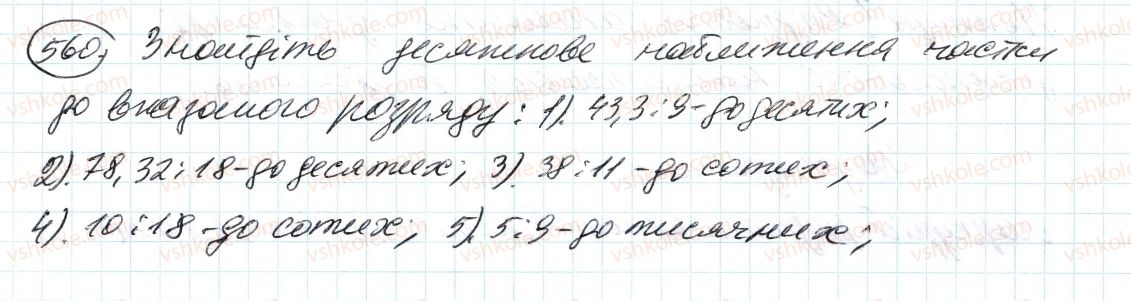 560, Знайдіть десяткове наближення частки
до вказаного розряду: 1). 43,3:9-до десятих;
2). 78,32:18-до десятих; 3). 38:11-до сотих;
4). 10:18-до сотих; 5). 5:9-до тисячних;